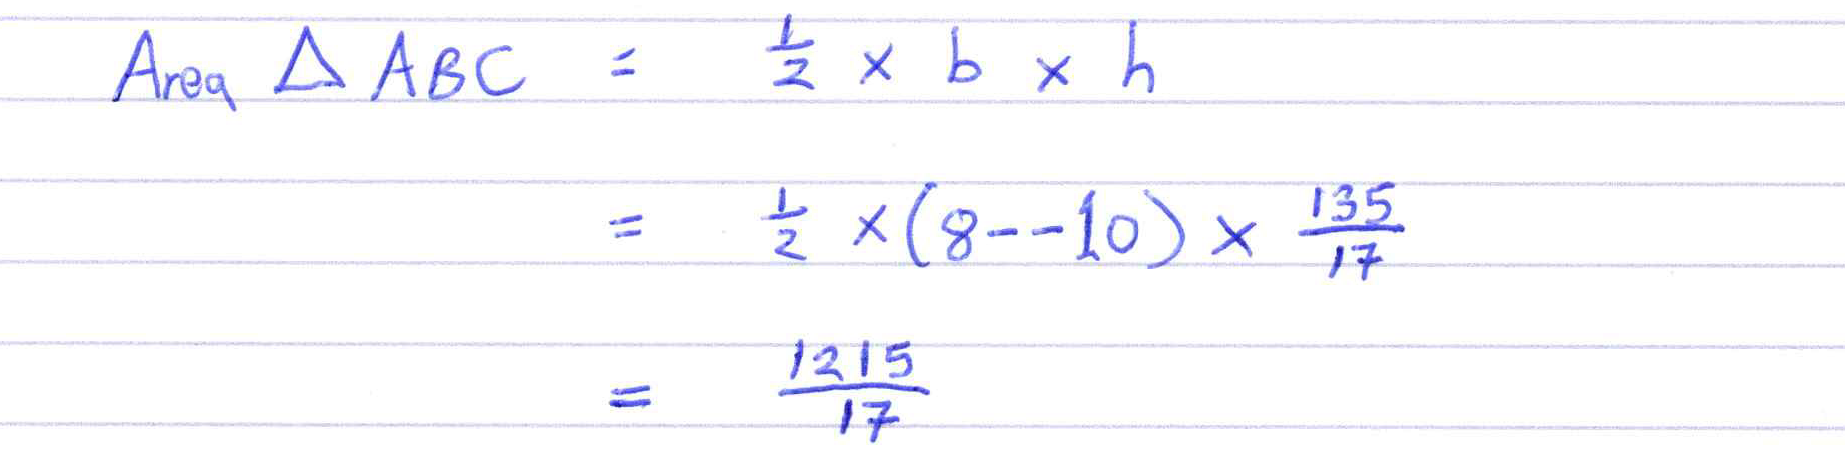 Area △ ABC = 1/2 × b × h
= 1/2 × (8--10) × 135/17
= 1215/17